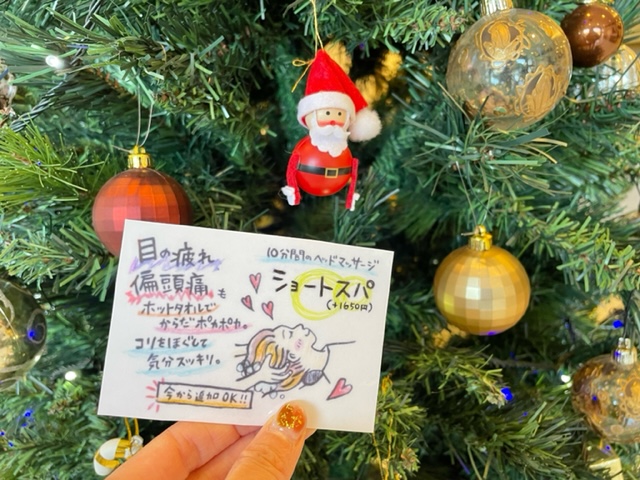 目の疲れ
偏頭痛も
ホットタオルで
からだポカポカ。
コリをほぐして
気分スッキリ。
今から追加OK!!
10分間のヘッドマッサージ
ショートスパ
(+1650円)